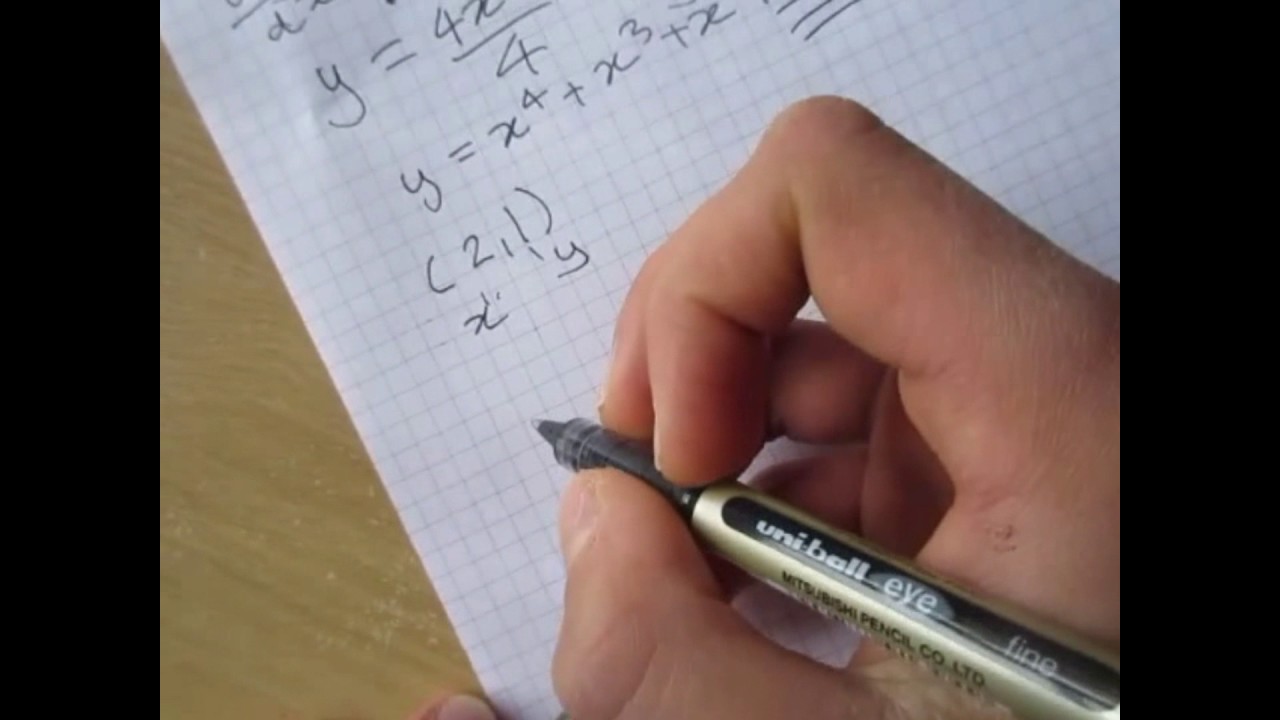 y = 4x
4
y = x⁴ + x³ + x
(2,1)
x y
uni-ball eye fine
MITSUBISHI PENCIL CO. LTD